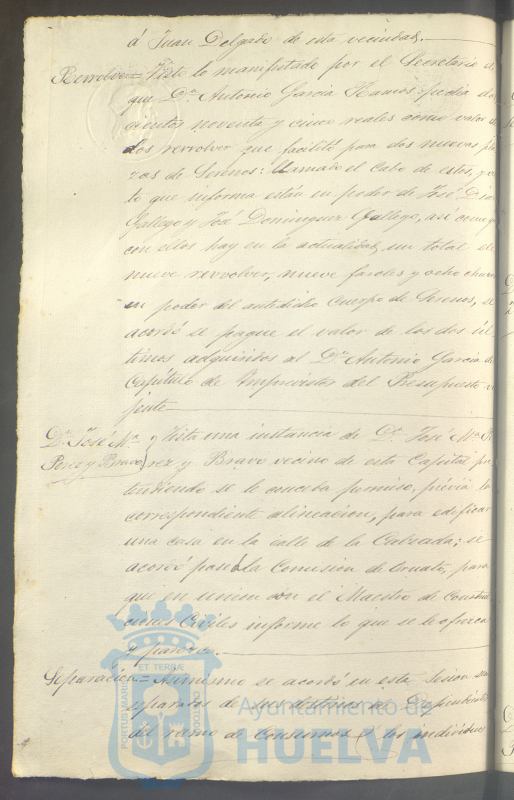 á Juan Delgado de esta vecindad.
Revolver = Visto lo manifestado por el Secretario de
que Dn. Antonio Garcia Ramos pedia dos
cientos noventa y cinco reales como valor de
dos revolver que facilitó para dos nuevas pla
zas de Serenos: llamado el Cabo de estos, y
lo que informa están en poder de José Diaz
Gallego y José Dominguez Gallego, así como q
con ellos hay en la actualidad, un total de
nueve revolver, nueve faroles y ocho chuzos
en poder del antedicho Cuerpo de Serenos, se
acordó se pague el valor de los dos úl
timos adquiridos al Dn. Antonio Garcia de
Capítulo de Imprevistos del Presupuesto vi
jente
Dn. José Ma. Perez y Bravo } Vista una instancia de Dn. José Ma. Pe
rez y Bravo vecino de esta Capital pre
tendiendo se le conceda permiso, prévia la
correspondiente alineacion, para edificar
una casa en la calle de la Calzada; se
acordó pase á la Comision de Ornato, para
que en union con el Maestro de Construc
ciones Civiles informe lo que se le ofrezca
y parezca.
Separacion = Asimismo se acordó en esta Sesion
separados de sus destinos Dependientes
del ramo de Consumos á los individuos
PORTUS MARIS ET TERRÆ CUSTODIA
Ayuntamiento de
HUELVA